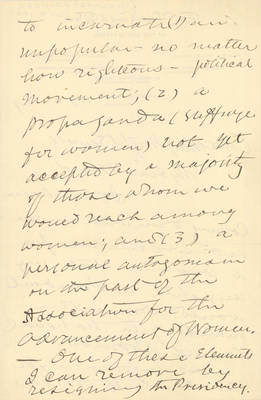 to incarnate (1) an
unpopular – no matter
how righteous – political
movement; (2) a
propaganda (suffrage
for women) not yet
accepted by a majority
of those whom we
would reach among
women; and (3) a
personal antagonism
on the part of the
Association for the
Advancement of Women.
– One of these Elements
I can remove by
resigning the Presidency.